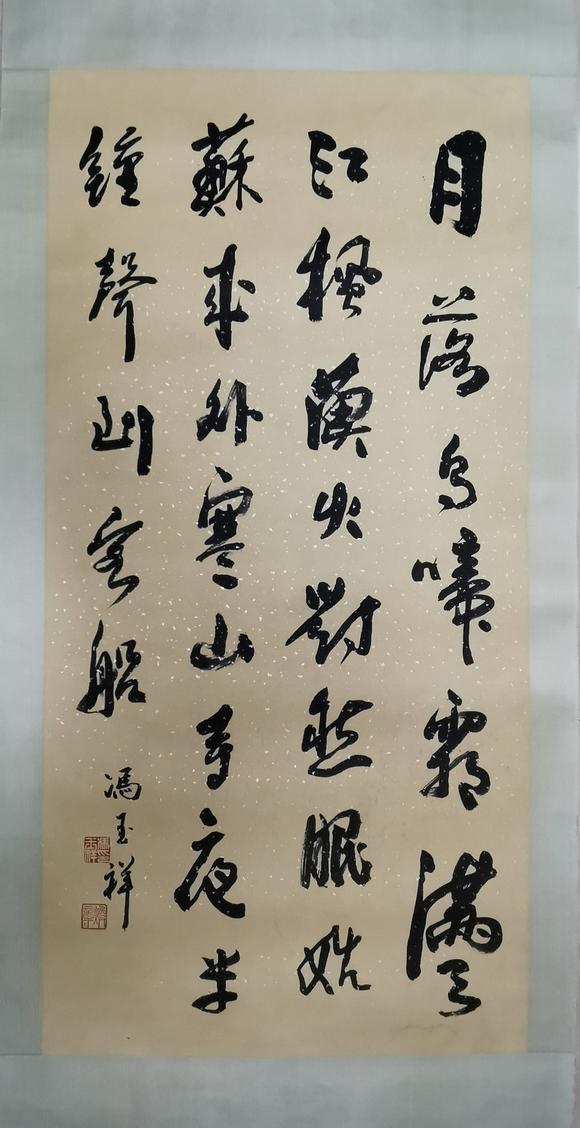 月落烏啼霜滿天
江楓漁火對愁眠姑
蘇城外寒山寺夜半
鐘聲到客船
馮玉祥